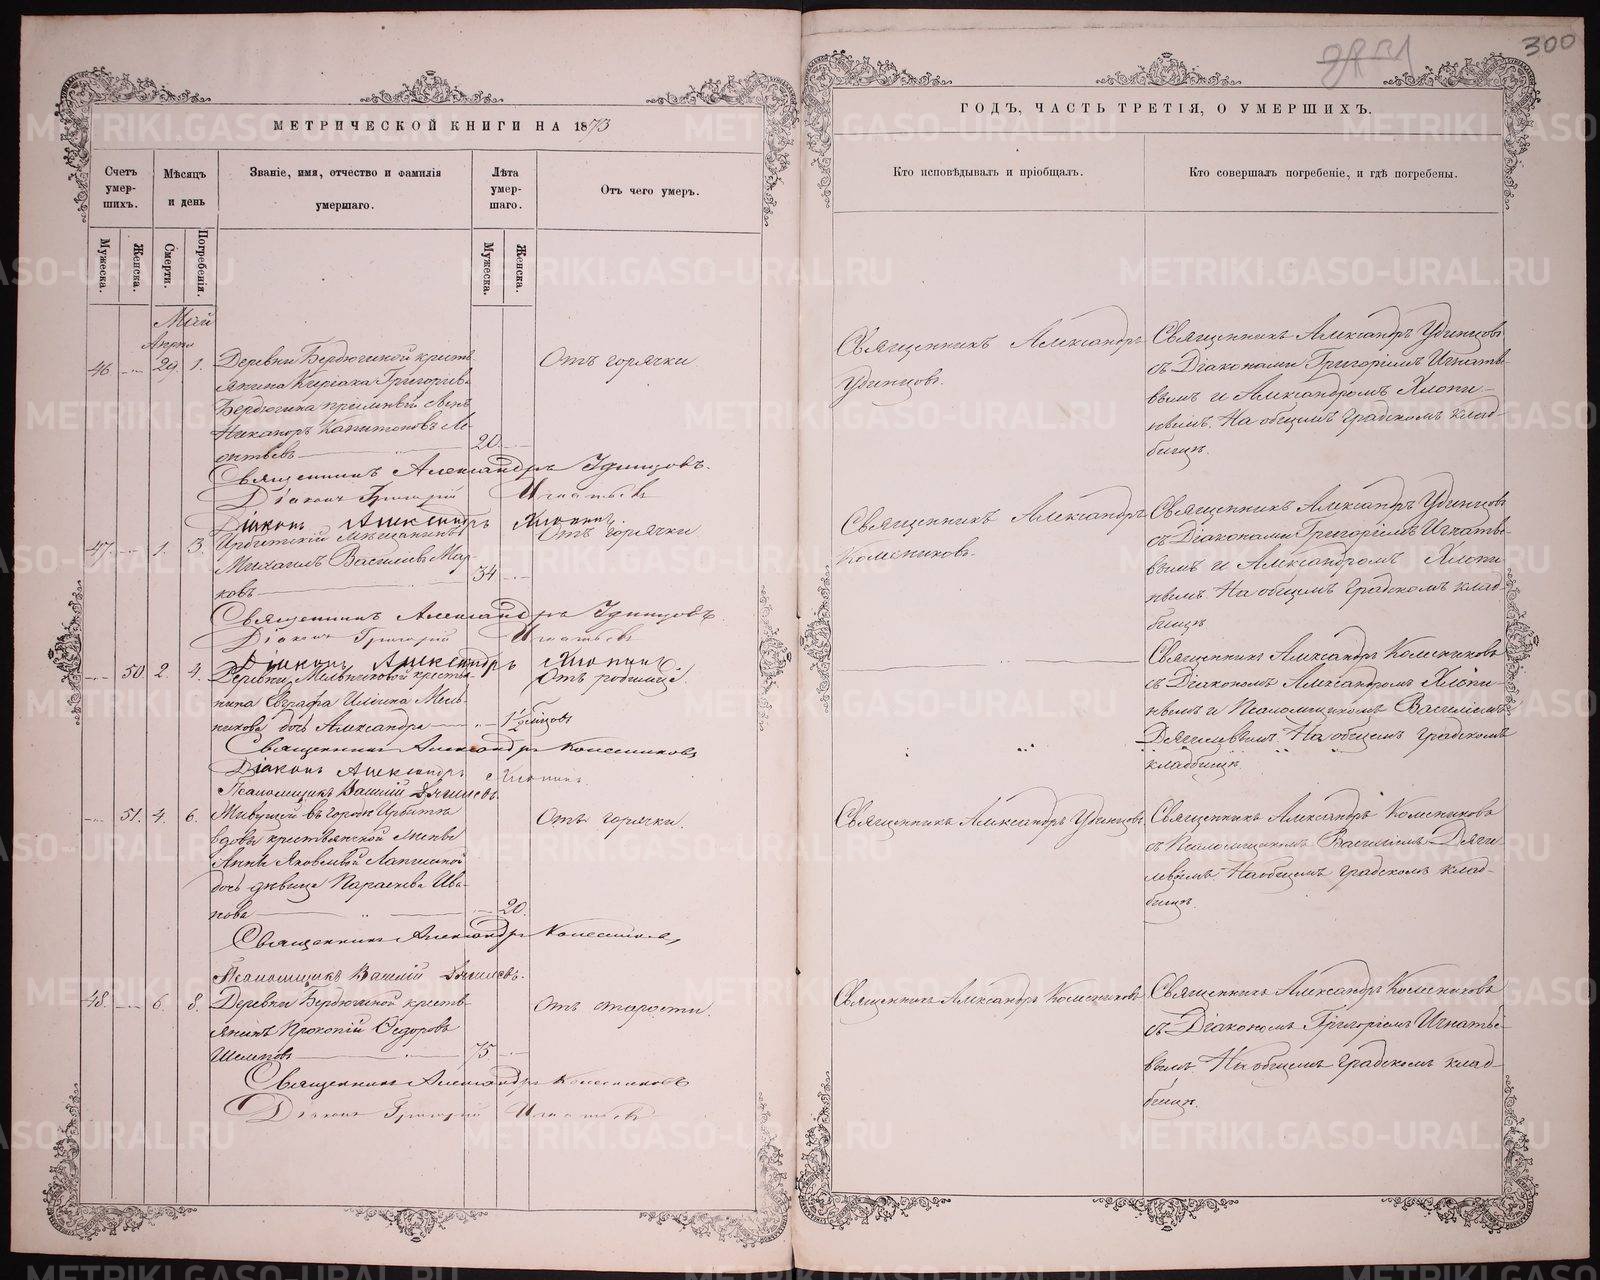 300
МЕТРИЧЕСКОЙ КНИГИ НА 1873
ГОДЪ, ЧАСТЬ ТРЕТІЯ, О УМЕРШИХЪ.
Счетъ умер-шихъ.
Мѣсяцъ и день
Званіе, имя, отчество и фамилія
умершаго.
Лѣта умер-шаго.
Отъ чего умеръ.
Кто исповѣдывалъ и пріобщалъ.
Кто совершалъ погребеніе, и гдѣ погребены.
Мужеска.
Женска.
Смерти.
Погребенія.
Мужеска.
Женска.
Май
46 29 1. Деревни Бердюгиной кресть-
янина Киріака Григоріева
Бердюгина пріемный сынъ
Никаноръ Капитоновъ Ле-
онтьевъ 20.
Отъ горячки
Священникъ Александръ
Удинцовъ.
Священникъ Александръ Удинцовъ
съ Діаконами Григоріемъ Игнатье-
вымъ и Александромъ Хлопи-
нымъ. На общемъ градскомъ клад-
бищѣ.
Священникъ Александръ Удинцовъ.
Діаконъ Григорій Игнатьевъ
Діаконъ Александръ Хлопинъ.
47. 1. 3. Ирбитскій Мѣщанинъ
Михаилъ Васильевъ Мар-
ковъ 34
Отъ горячки
Священникъ Александръ
Колесниковъ.
Священникъ Александръ Удинцовъ
съ Діаконами Григоріемъ Игнатье-
вымъ и Александромъ Хлопи-
нымъ. На общемъ градскомъ клад-
бищѣ
Священникъ Александръ Удинцовъ.
Діаконъ Григорій Игнатьевъ
Діаконъ Александръ Хлопинъ.
50. 2. 4. Деревни Мельниковой крестья-
нина Евграфа Ильина Мель-
никова дочь Александра 1½ мѣсяцовъ
Отъ родимца.
Священникъ Александръ Колесниковъ
съ Діакономъ Александромъ Хлопи-
нымъ и Псаломщикомъ Василіемъ
Дягилевымъ. На общемъ градскомъ
кладбищѣ.
Священникъ Александръ Колесниковъ
Діаконъ Александръ Хлопинъ
Псаломщикъ Василій Дягилевъ.
51. 4. 6. Живущей въ городѣ Ирбитѣ
вдовы крестьянской жены
Анны Яковлевой Лапшиной
дочь дѣвица Параскева Ива-
нова 20.
Отъ горячки.
Священникъ Александръ Удинцовъ
Священникъ Александръ Колесниковъ
съ Псаломщикомъ Василіемъ Дяги-
левымъ. На общемъ градскомъ клад-
бищѣ.
Священникъ Александръ Колесниковъ
Псаломщикъ Василій Дягилевъ.
48. 6. 8. Деревни Бердюгиной кресть-
янинъ Прокопій Ѳедоровъ
75
Отъ старости.
Священникъ Александръ Колесниковъ
Священникъ Александръ Колесниковъ
съ Діакономъ Григоріемъ Игнатье-
вымъ. На общемъ градскомъ клад-
бищѣ.
Священникъ Александръ Колесниковъ
Діаконъ Григорій Игнатьевъ
METRIKI.GASO-URAL.RU